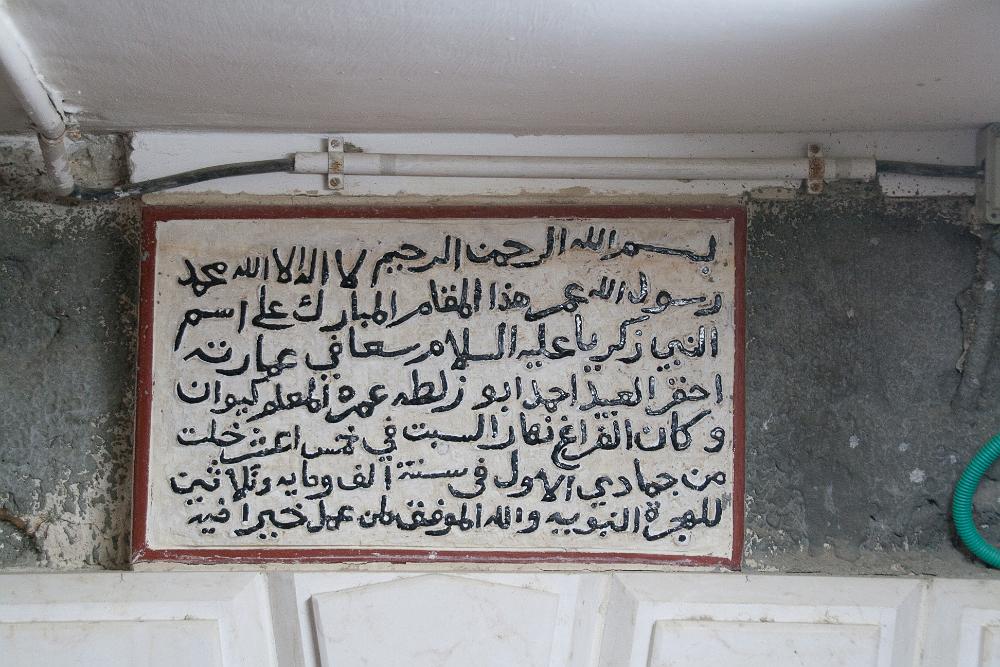 بسم الله الرحمن الرحيم لا اله الا الله محمد
رسول الله عمر هذا المقام المبارك على اسم
النبي زكريا عليه السلام سعا في عمارته
احقر العبيد احمد ابو زلطه عمره المعلم كيوان
وكان الفراغ نهار السبت في خمس اعشر خلت
من جمادي الاول في سنة الف ومايه وثلاثين
للهجرة النبويه والله الموفق لمن عمل خيرا فيه